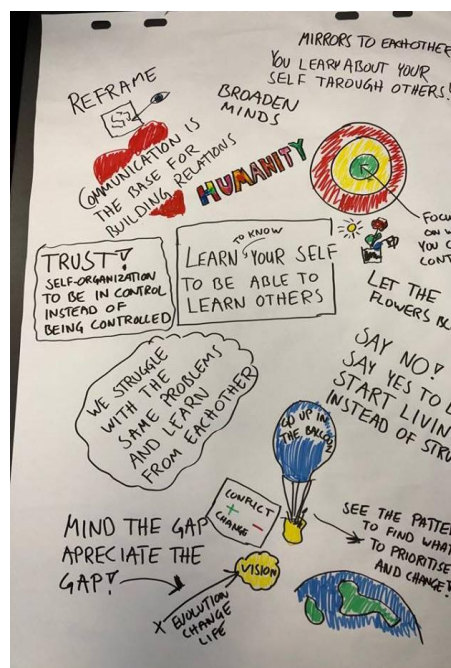 MIRRORS TO EACHOTHER
YOU LEARN ABOUT YOUR
SELF THROUGH OTHERS!
REFRAME
BROADEN
MINDS
COMMUNICATION IS
THE BASE FOR
BUILDING RELATIONS
HUMANITY
FOCU
ON W
YOU C
CONT
TRUST!
SELF-ORGANIZATION
TO BE IN CONTROL
INSTEAD OF
BEING CONTROLLED
TO KNOW
LEARN YOUR SELF
TO BE ABLE TO
LEARN OTHERS
LET THE
FLOWERS BL
SAY NO!
SAY YES TO
START LIVIN
INSTEAD OF STRU
WE STRUGGLE
WITH THE
SAME PROBLEMS
AND LEARN
FROM EACHOTHER
GO UP IN
THE BALLOON
CONFLICT
+
CHANGE -
SEE THE PATTE
TO FIND WHAT
TO PRIORITISE
AND CHANGE!
MIND THE GAP
APRECIATE THE
GAP!
VISION
X EVOLUTION
CHANGE
LIFE